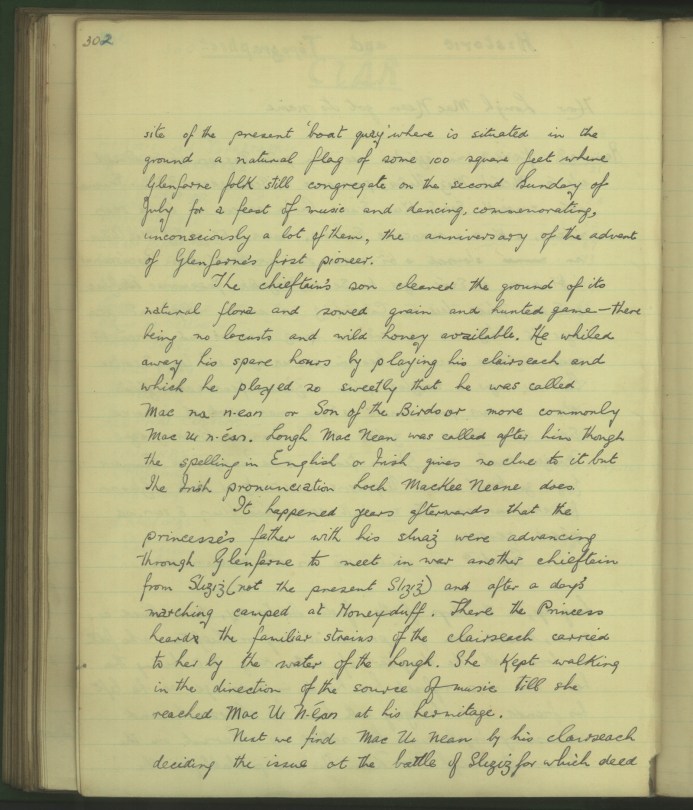 302
site of the present 'boat quay' where is situated in the
ground a natural flag of some 100 square feet where
Glenfarne folk still congregate on the second Sunday of
July for a feast of music and dancing, commemorating,
unconsciously a lot of them, the anniversary of the advent
of Glenfarne's first pioneer.
The chieftain's son cleared the ground of its
natural flora and sowed grain and hunted game—there
being no locusts and wild honey available. He whiled
away his spare hours by playing his clairseach and
which he played so sweetly that he was called
Mac na n-ean or Son of the Birds or more commonly
Mac Ui n-éan. Lough Mac Nean was called after him though
the spelling in English or Irish gives no clue to it but
the Irish pronunciation Loch MacKee Neane does
It happened years afterwards that the
princesse's father with his sluaġ were advancing
through Glenfarne to meet in war another chieftain
from Sligiġ (not the present Sligiġ) and after a day's
marching camped at Moneyduff. There the Princess
heard the familiar strains of the clairseach carried
to her by the water of the Lough. She kept walking
in the direction of the source of music till she
reached Mac Ui N-Éan at his hermitage.
Next we find Mac Ui Nean by his clairseach
deciding the issue at the battle of Sligiġ for which deed